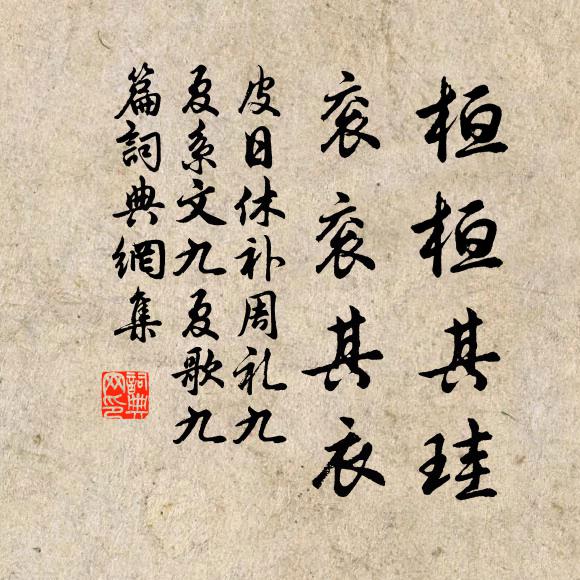 桓桓其珪
衮衮其衣
皮日休补周礼九
夏系文九夏歌九
篇詞典網集
詞典网印